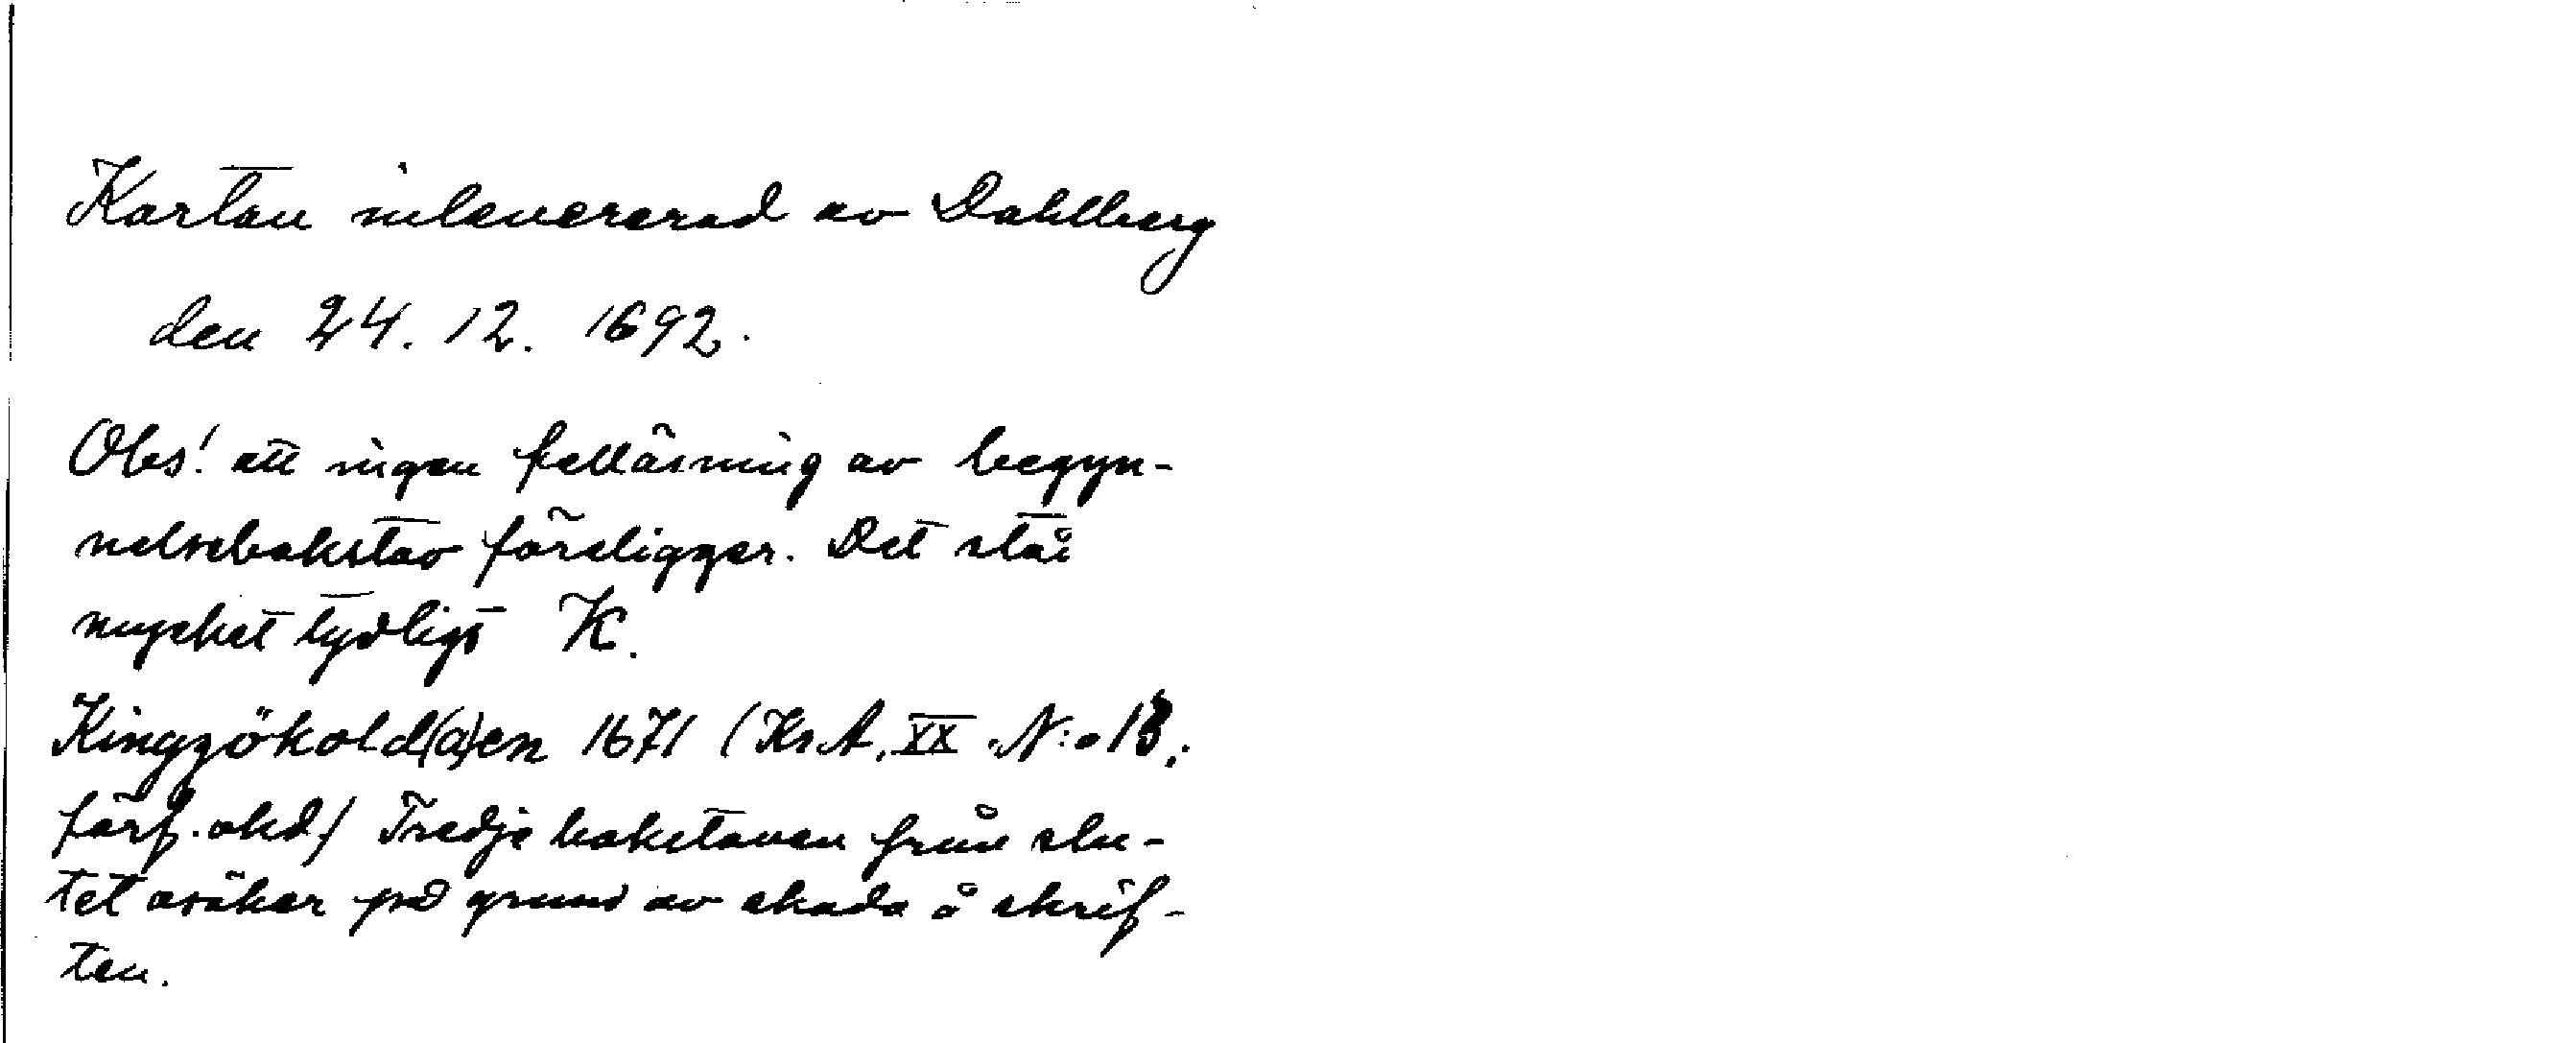 Kartan inlevererad av Dahlberg
den 24. 12. 1692.
Obs! att ingen felläsning av begyn-
nelsebokstav föreligger. Det står
mycket tydligt K.
Kingzökold(a)en 1671 (Kr.A. XX N:o 13;
förf. okd.) Tredje bokstaven från slu-
tet osäker på grund av skada å skrif-
ten.